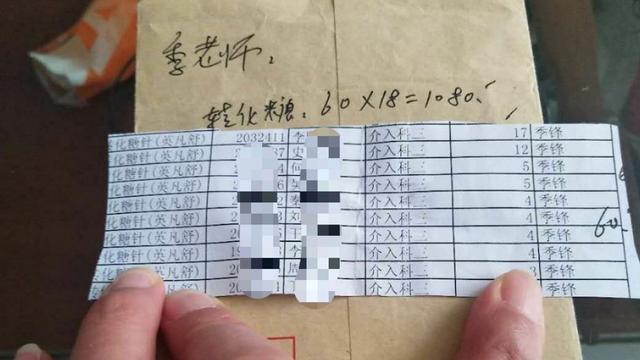 季老师,
转化糖: 60×18=1080.
化糖针(英凡舒) 2032411 李 介入科三 17 季锋
化糖针(英凡舒) 37 史 介入科三 12 季锋
化糖针(英凡舒) 4 何 介入科三 5 季锋
化糖针(英凡舒) 6 介入科三 5 季锋
化糖针(英凡舒) 20 秦 介入科三 4 季锋
化糖针(英凡舒) 20 3 刘 介入科三 4 季锋 60
化糖针(英凡舒) 20 王 介入科三 4 季锋
化糖针(英凡舒) 19 李 介入科三 4 季锋
化糖针(英凡舒) 20 周 介入科三 3 季锋
化糖针(英凡舒) 20 4 介入科三 季锋